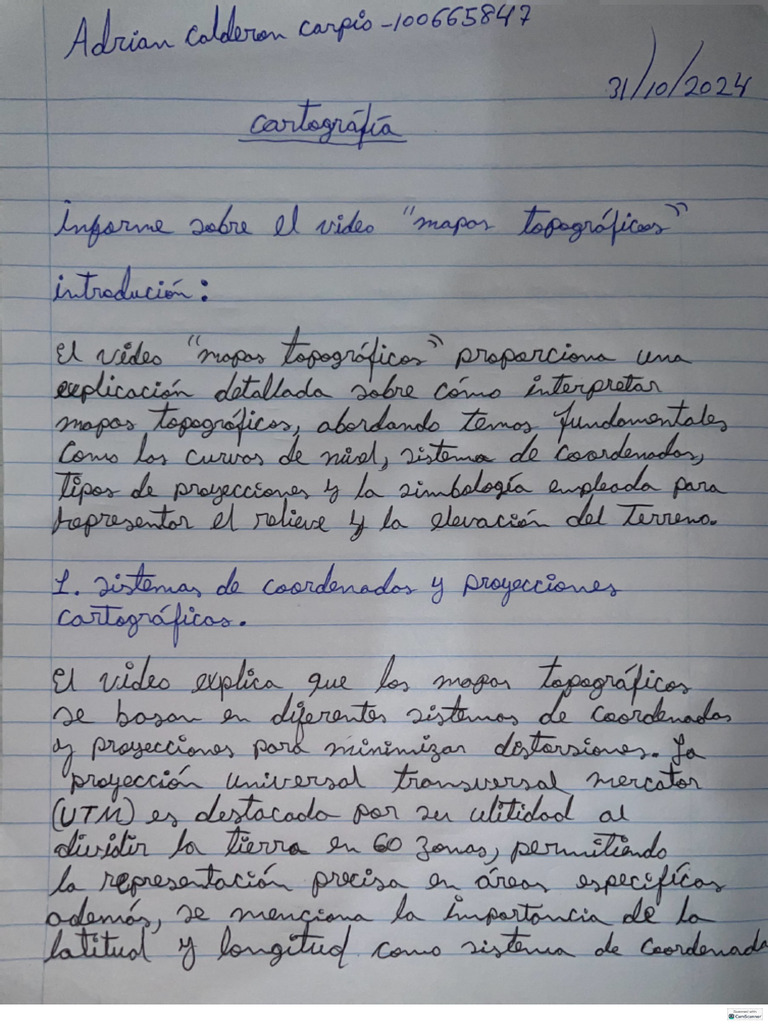 Adrian Calderon Carpio - 100665847
31/10/2024
Cartográfia
Informe sobre el video "mapas topográficos"
introdución:
El video "mapas topográficos" proporciona una
explicación detallada sobre cómo interpretar
mapas topográficos, abordando temas fundamentales
como las curvas de nivel, sistema de coordenadas,
tipos de proyecciones y la simbología empleada para
representar el relieve y la elevación del terreno.
1. sistemas de coordenadas y proyecciones
cartográficas.
El video explica que los mapas topográficos
se basan en diferentes sistemas de coordenadas
y proyecciones para minimizar distorsiones. La
proyección universal transversal mercator
(UTM) es destacada por su utitidad al
dividir la tierra en 60 zonas, permitiendo
la representación precisa en áreas específicas
además, se menciona la importancia de la
latitud y longitud como sistema de coordenada
Scanned with
CamScanner